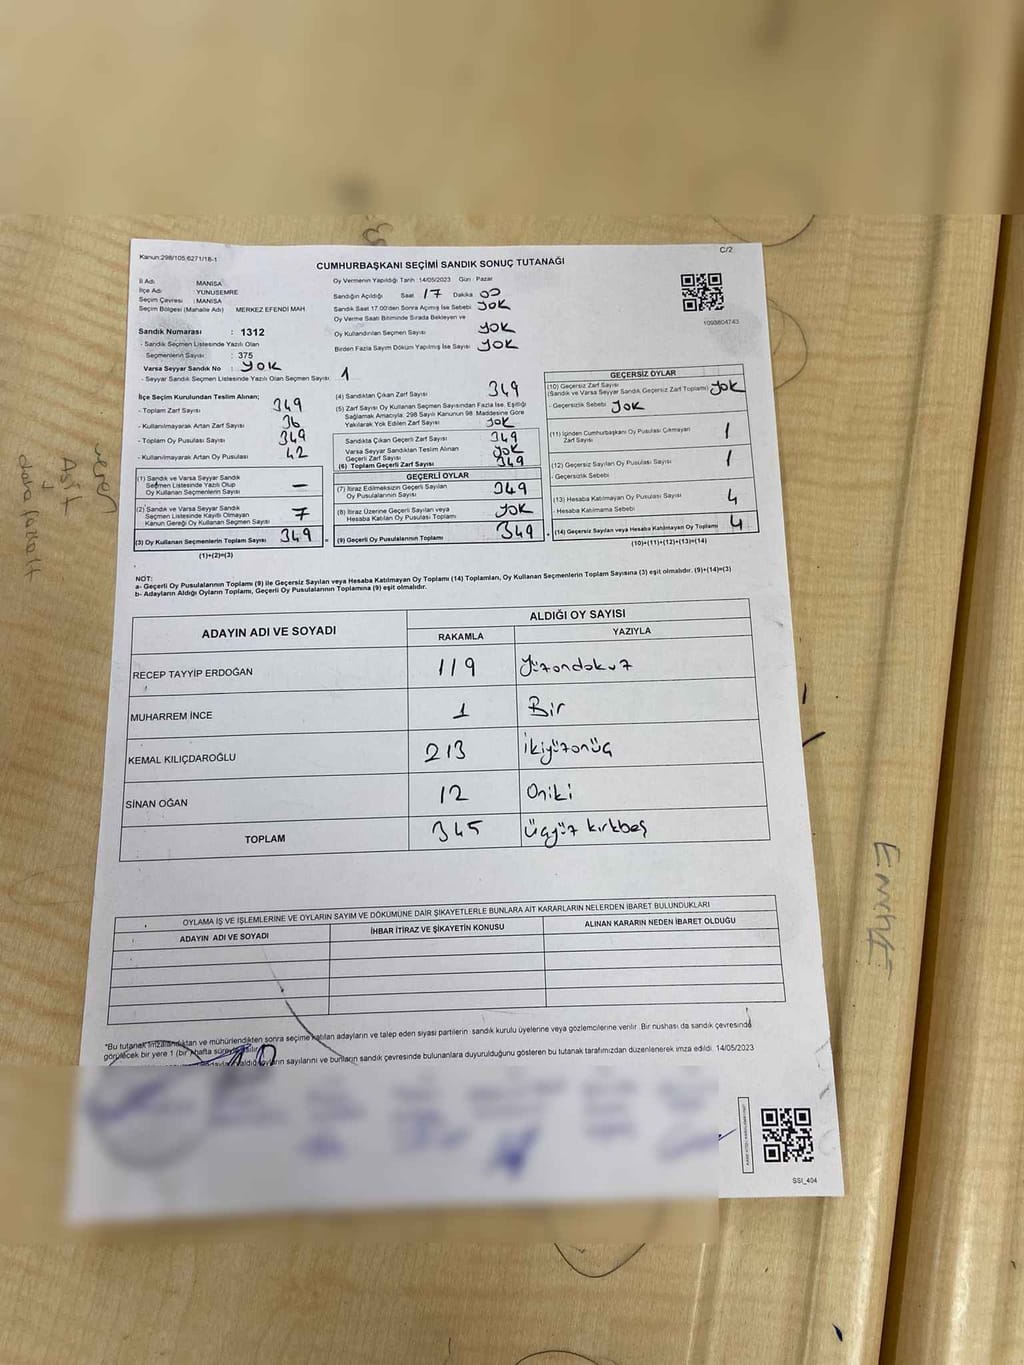 Kanun:298/105,6271/18-1
C/2
CUMHURBAŞKANI SEÇİMİ SANDIK SONUÇ TUTANAĞI
İl Adı : MANİSA
İlçe Adı : YUNUSEMRE
Seçim Çevresi : MANİSA
Seçim Bölgesi (Mahalle Adı) : MERKEZ EFENDİ MAH.
Sandık Numarası : 1312
- Sandık Seçmen Listesinde Yazılı Olan
Seçmenlerin Sayısı : 375
Varsa Seyyar Sandık No : YOK
- Seyyar Sandık Seçmen Listesinde Yazılı Olan Seçmen Sayısı: 1
Oy Vermenin Yapıldığı Tarih : 14/05/2023 Gün : Pazar
Sandığın Açıldığı Saat 17 Dakika 00
Sandık Saat 17.00'den Sonra Açılmış İse Sebebi YOK
Oy Verme Saati Bitiminde Sırada Bekleyen ve
Oy Kullandırılan Seçmen Sayısı YOK
Birden Fazla Sayım Döküm Yapılmış İse Sayısı YOK
1093804743
İlçe Seçim Kurulundan Teslim Alınan;
- Toplam Zarf Sayısı 349
- Kullanılmayarak Artan Zarf Sayısı 36
- Toplam Oy Pusulası Sayısı 349
- Kullanılmayarak Artan Oy Pusulası 42
(1) Sandık ve Varsa Seyyar Sandık
Seçmen Listesinde Yazılı Olup
Oy Kullanan Seçmenlerin Sayısı —
(2) Sandık ve Varsa Seyyar Sandık
Seçmen Listesinde Kayıtlı Olmayan
Kanun Gereği Oy Kullanan Seçmen Sayısı 7
(3) Oy Kullanan Seçmenlerin Toplam Sayısı 349
(1)+(2)=(3)
(4) Sandıktan Çıkan Zarf Sayısı 349
(5) Zarf Sayısı Oy Kullanan Seçmen Sayısından Fazla İse, Eşitliği
Sağlamak Amacıyla; 298 Sayılı Kanunun 98. Maddesine Göre
Yakılarak Yok Edilen Zarf Sayısı YOK
Sandıkta Çıkan Geçerli Zarf Sayısı 349
Varsa Seyyar Sandıktan Teslim Alınan
Geçerli Zarf Sayısı YOK
(6) Toplam Geçerli Zarf Sayısı 349
GEÇERLİ OYLAR
(7) İtiraz Edilmeksizin Geçerli Sayılan
Oy Pusulalarının Sayısı 349
(8) İtiraz Üzerine Geçerli Sayılan veya
Hesaba Katılan Oy Pusulası Toplamı YOK
(9) Geçerli Oy Pusulalarının Toplamı 349
GEÇERSİZ OYLAR
(10) Geçersiz Zarf Sayısı
(Sandık ve Varsa Seyyar Sandık Geçersiz Zarf Toplamı) YOK
- Geçersizlik Sebebi YOK
(11) İçinden Cumhurbaşkanı Oy Pusulası Çıkmayan
Zarf Sayısı 1
(12) Geçersiz Sayılan Oy Pusulası Sayısı 1
- Geçersizlik Sebebi
(13) Hesaba Katılmayan Oy Pusulası Sayısı 4
- Hesaba Katılmama Sebebi
(14) Geçersiz Sayılan veya Hesaba Katılmayan Oy Toplamı 4
(10)+(11)+(12)+(13)=(14)
NOT:
a- Geçerli Oy Pusulalarının Toplamı (9) ile Geçersiz Sayılan veya Hesaba Katılmayan Oy Toplamı (14) Toplamları, Oy Kullanan Seçmenlerin Toplam Sayısına (3) eşit olmalıdır. (9)+(14)=(3)
b- Adayların Aldığı Oyların Toplamı, Geçerli Oy Pusulalarının Toplamına (9) eşit olmalıdır.
ADAYIN ADI VE SOYADI
ALDIĞI OY SAYISI
RAKAMLA YAZIYLA
RECEP TAYYİP ERDOĞAN 119 Yüzondokuz
MUHARREM İNCE 1 Bir
KEMAL KILIÇDAROĞLU 213 İkiyüzonüç
SİNAN OĞAN 12 Oniki
TOPLAM 345 Üçyüz kırkbeş
OYLAMA İŞ VE İŞLEMLERİNE VE OYLARIN SAYIM VE DÖKÜMÜNE DAİR ŞİKAYETLERLE BUNLARA AİT KARARLARIN NELERDEN İBARET BULUNDUKLARI
ADAYIN ADI VE SOYADI İHBAR İTİRAZ VE ŞİKAYETİN KONUSU ALINAN KARARIN NEDEN İBARET OLDUĞU
*Bu tutanak imzalandıktan ve mühürlendikten sonra seçime katılan adayların ve talep eden siyasi partilerin sandık kurulu üyelerine veya gözlemcilerine verilir. Bir nushası da sandık çevresinde
görülecek bir yere 1 (bir) hafta süreyle asılır.
sayılarını ve bunların sandık çevresinde bulunanlara duyurulduğunu gösteren bu tutanak tarafımızdan düzenlenerek imza edildi. 14/05/2023
SSİ_404